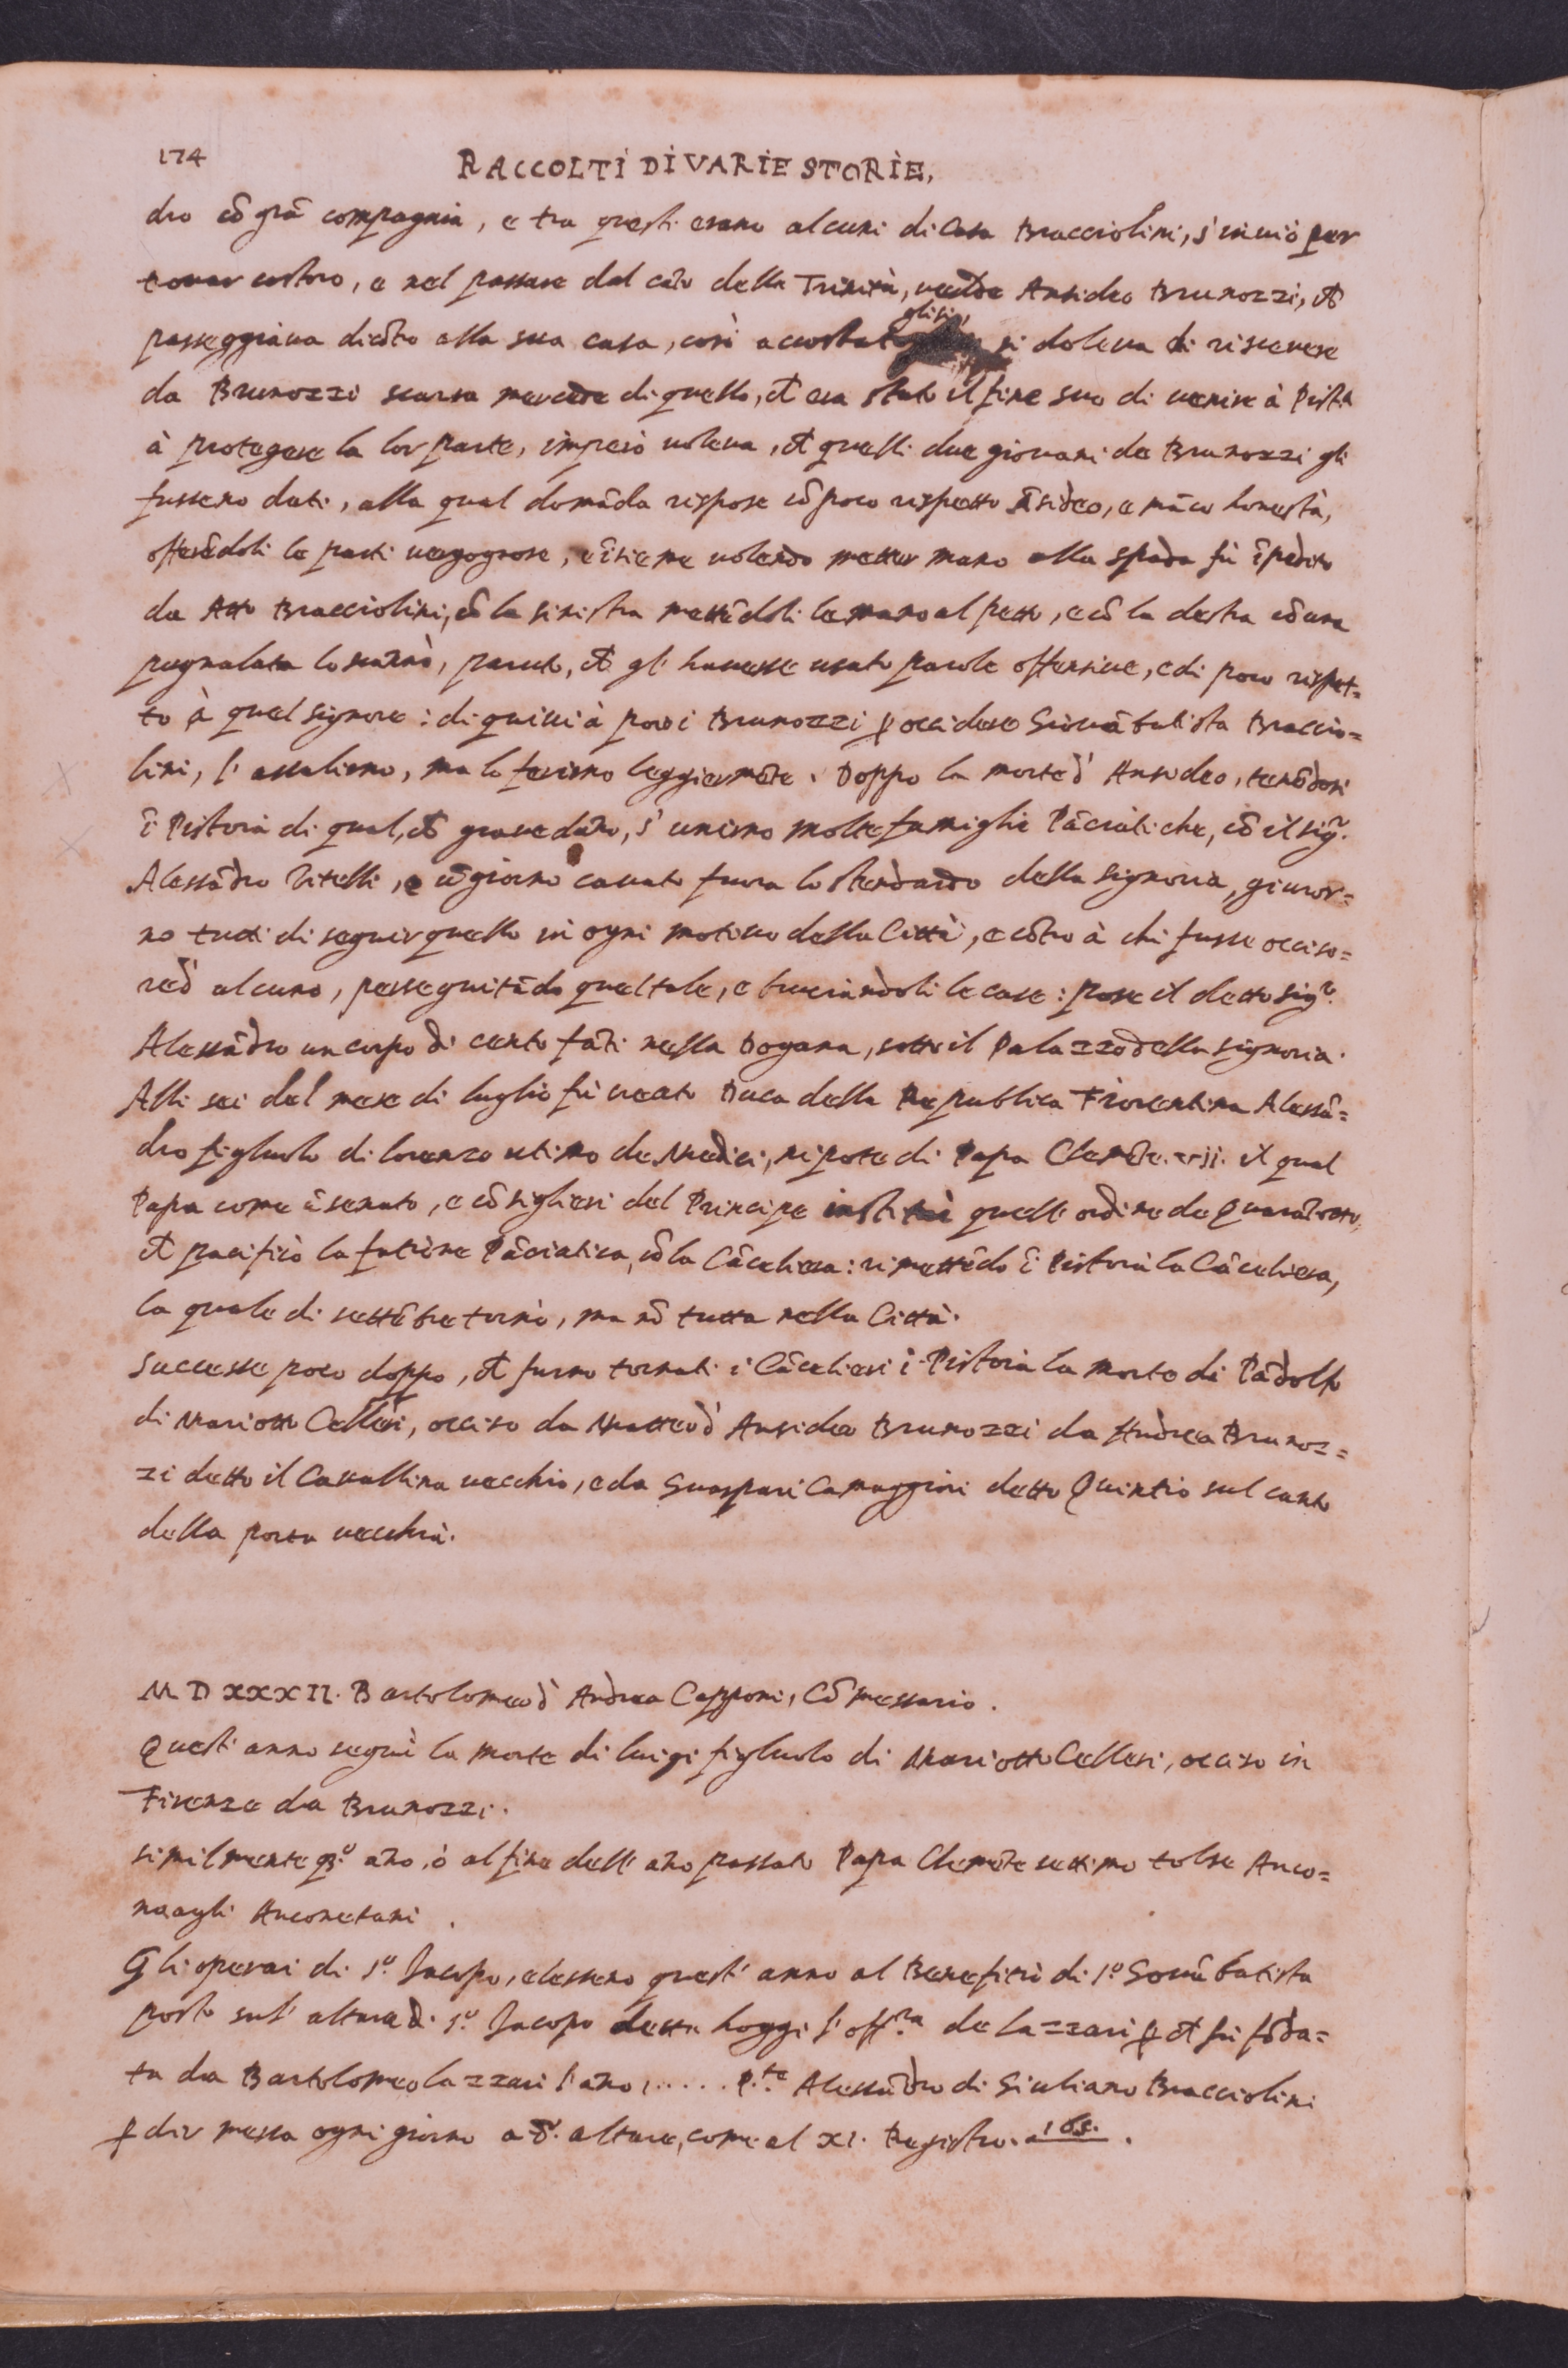 174
RACCOLTI DI VARIE STORIE,
dro cõ grã compagnia, e tra questi erano alcuni di Casa Bracciolini, s'inuiò per
trouar costoro, e nel passare dal cãto della Trinità, uedde Ansideo Brunozzi, ch̃
passeggiaua dicõtro alla sua casa, così accostato glisi, si doleua di riceuere
da Brunozzi scarsa mercede di quello, ch̃ era stato il fine suo di uenire à Pist.a
à protegere la lor parte, imperò uoleua, ch̃ quelli due giouani de Brunozzi gli
fusseno dati, alla qual domãda rispose cõ poco rispetto Ãsideo, e mãco honestà,
offerẽdoli le parti uergognose, e ĩsieme uolendo metter mano alla spada fù ĩpedito
da Atto Bracciolini, cõ la sinistra mettẽdoli le mano al petto, e cõ la destra cõ una
pugnalata lo scannò, paruto, ch̃ gl'hauesse usato parole offensiue, e di poco rispet=
to à quel signore: di quiui à poco i Brunozzi p̱ occidere Giouãbatista Braccio=
lini, l'assalirno, ma lo ferirno leggiermẽte. Doppo la morte d'Ansideo, tenẽdosi
ĩ Pistoia di qual, ch̃ graue dãno, s'unirno molte famiglie Pãciatiche, cõ il sig.r
Alessãdro Vitelli, e ũ giorno cauato fuora lo stendardo della Signoria, giuror=
no tutti di seguir quello in ogni motiuo della Città, e cõtro à chi fusse occiso=
re d'alcuno, perseguitãdo quel tale, e bruciandoli le case: pose il detto sig.r
Alessãdro un corpo di cento fãti nella Dogana, sotto il Palazzo della Signoria.
Alli sei del mese di luglio fù creato Duca della Republica Fiorentina Alessã=
dro figliuolo di lorenzo utimo de Medici, nipote di Papa Clemẽte. vii. il qual
Papa come ũ senato, e cõsiglieri del Principe instituì quell'ordine de Quarãtotto,
ch̃ pacificò la fatione Pãciatica, cõ la Cãceliera: rimettẽdo ĩ Pistoia la Cãceliera,
la quale di settẽbre tornò, ma nõ tutta nella Città.
Successe poco doppo, ch̃ furno tornati i Cãcelieri ĩ Pistoia la morte di Pãdolfo
di Mariotto Cellesi, occiso da Matteo d'Ansideo Brunozzi da Andrea Brunoz=
zi detto il Cauallina uecchio, e da Guaspari Camaggiori detto Quintio sul canto
della porta uecchia.
MDXXXII. Bartolomeo d'Andrea Capponi, Cõmessario.
Quest'anno seguì la morte di luigi figliuolo di Mariotto Cellesi, occiso in
Firenze da Brunozzi.
similmente q.o ãno, ò al fine dell'ãno passato Papa Clemẽte settimo tolse Anco=
na agli Anconetani.
Gli operai di s.o Jacopo, elesseno quest'anno al Benefitio di s.o Gouãbatista
posto sul'altare di s.o Jacopo detto hoggi l'off.ra de lazzari p̱ ch̃ fù fõda=
ta da Bartolomeo lazzari l'ãno, ..... P.te Alessãdro di Giuliano Bracciolini
p̱ dir messa ogni giorno a d.o altare, come al XI. Registro. a 165.